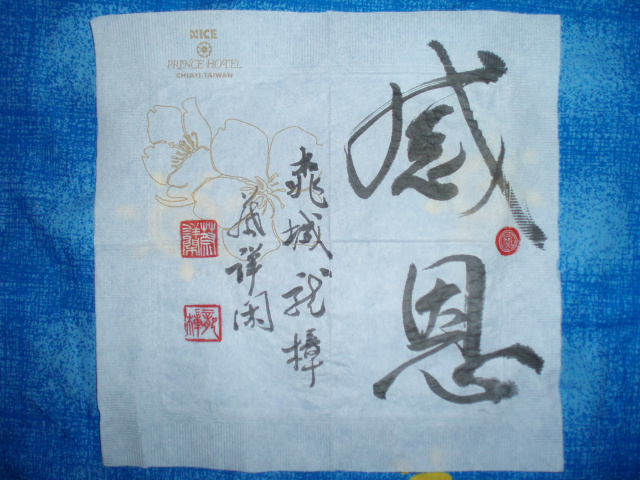 NICE
PRINCE HOTEL
CHIAYI.TAIWAN
感恩
桃城龍樟
蔡詳閑